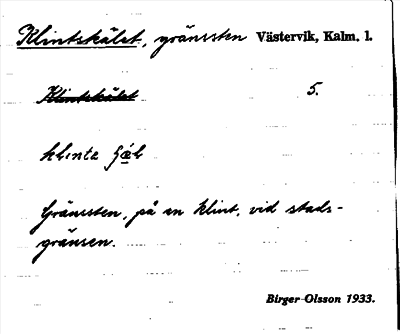 Klintskälet, gränssten Västervik, Kalm. l.
Klintskälet 5.
klinte
Gränssten, på en klint, vid stads-
gränsen.
Birger Olsson 1933.